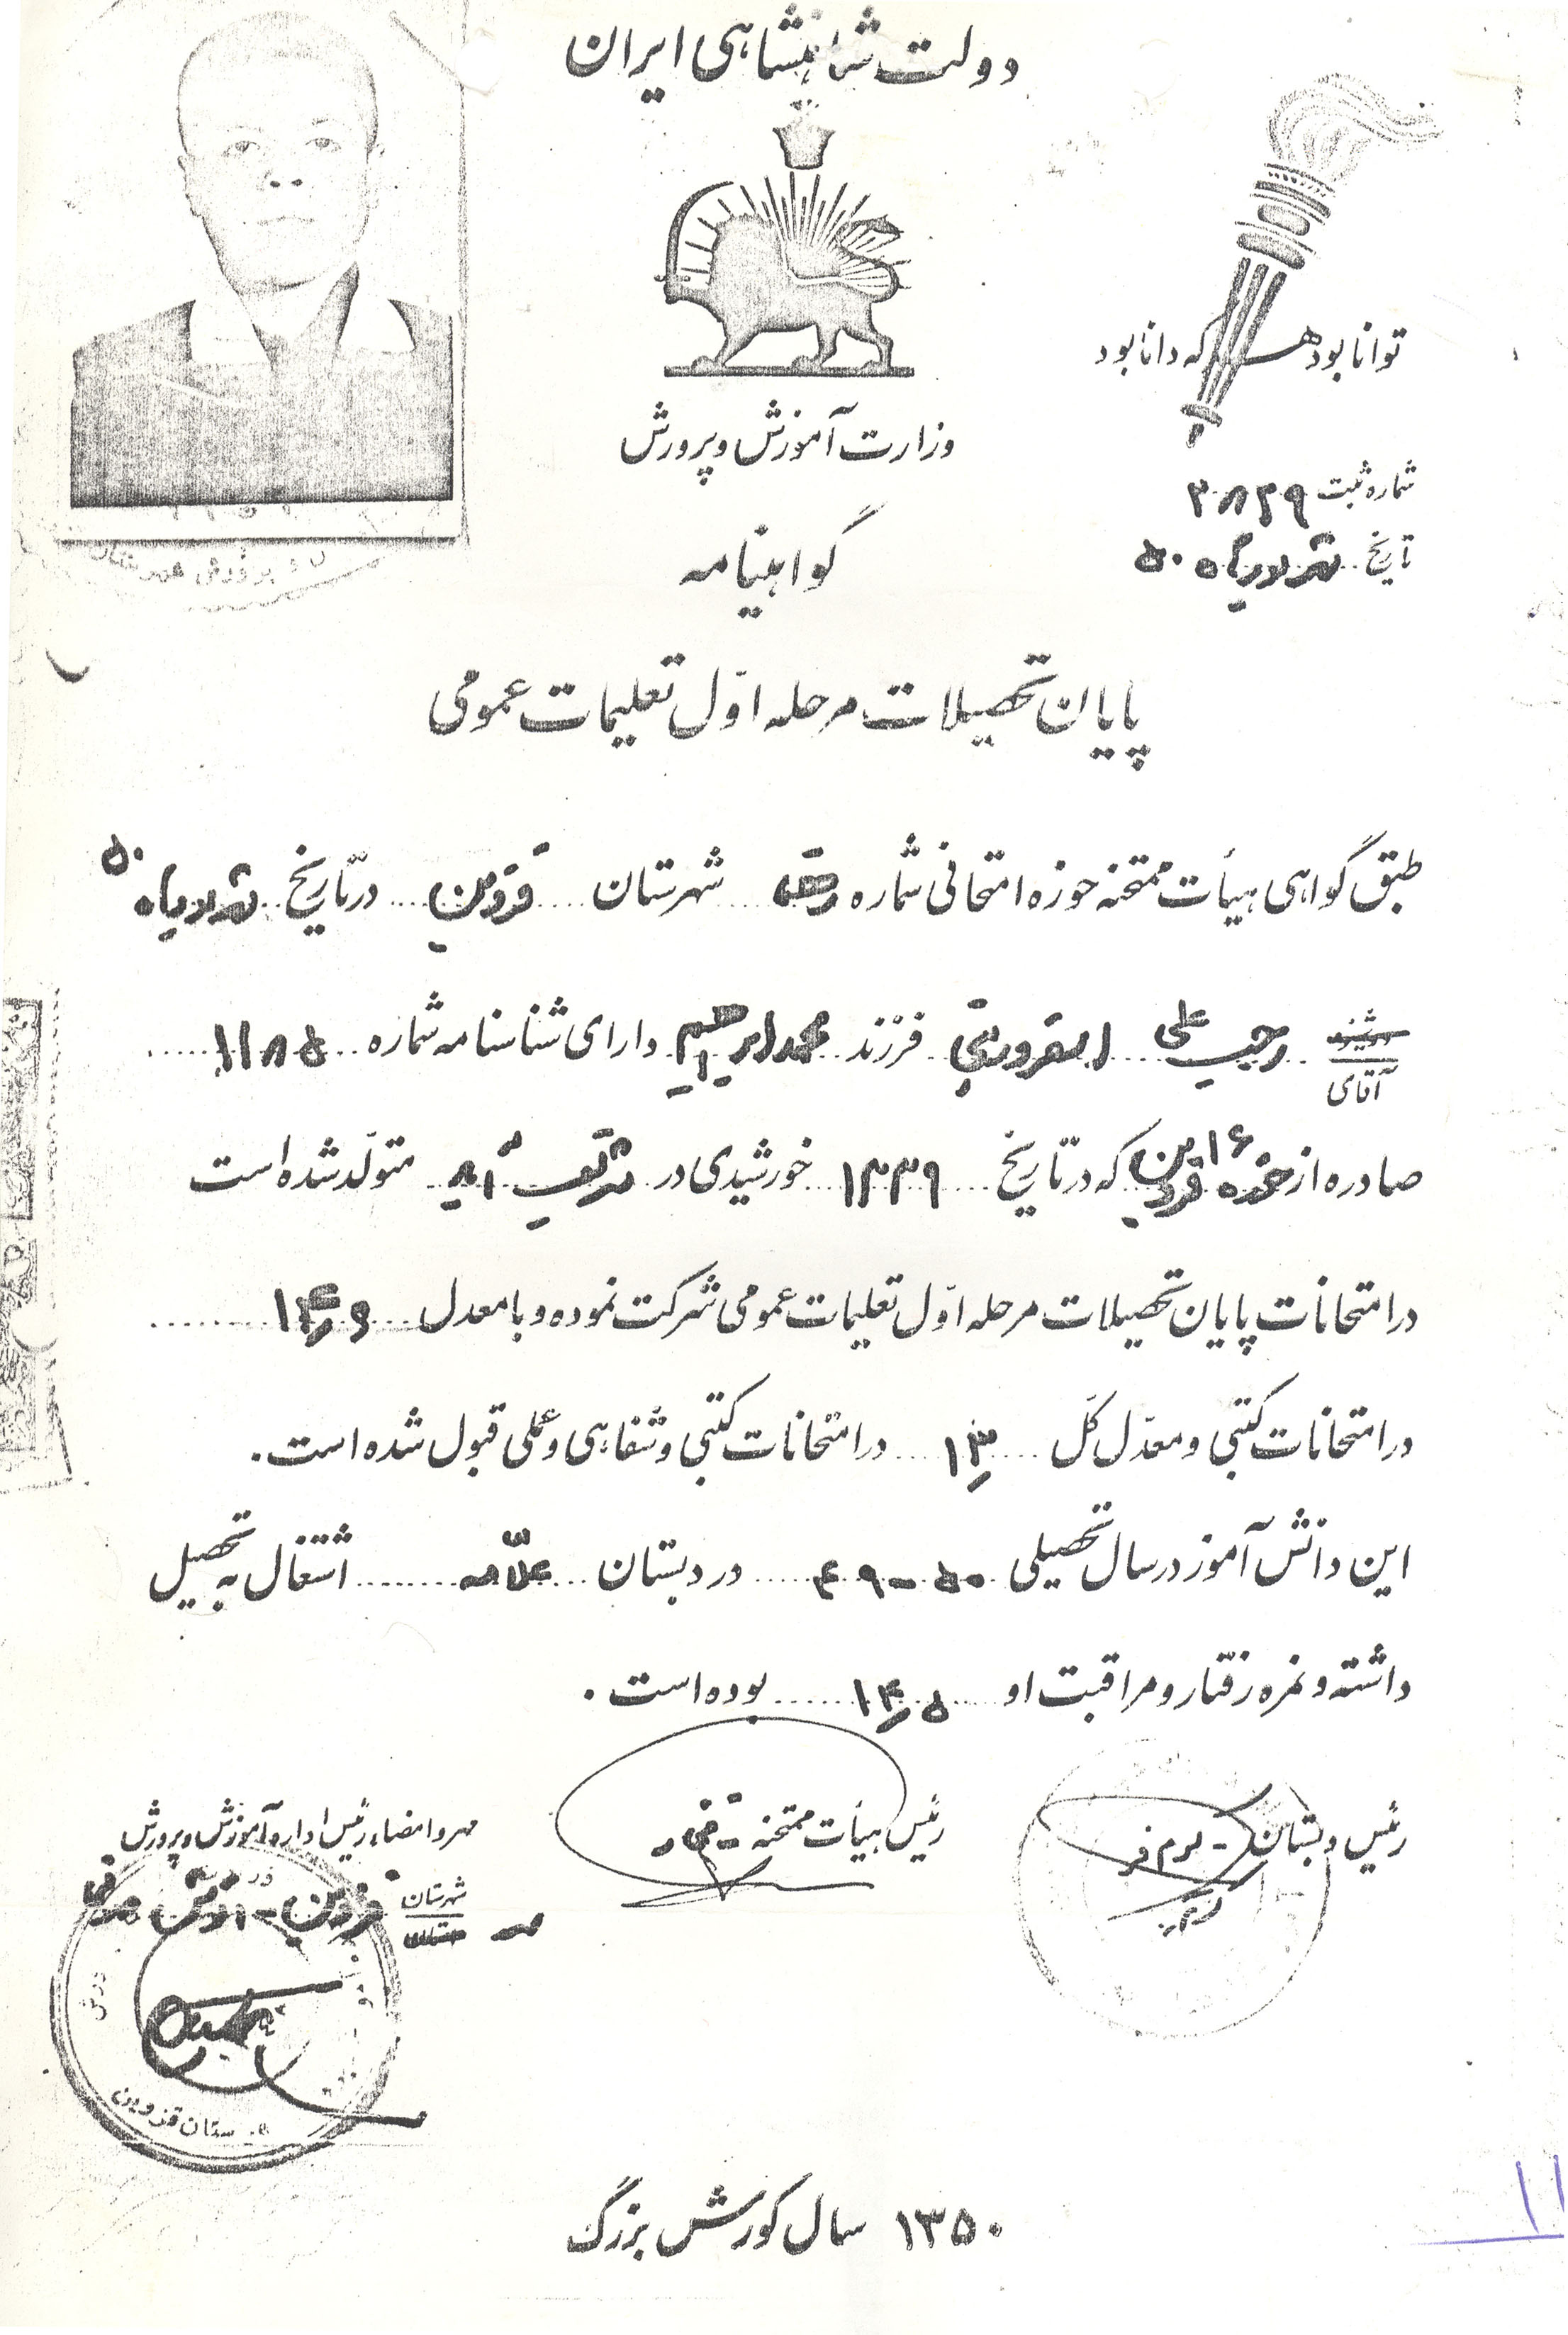 دولت شاهنشاهی ایران
توانا بود هر که دانا بود
وزارت آموزش و پرورش
شماره ثبت ۳۸۲۹
تاریخ خردادماه ۵۰
گواهینامه
پایان تحصیلات مرحله اوّل تعلیمات عمومی
طبق گواهی هیأت ممتحنه حوزه امتحانی شماره شهرستان قزوین در تاریخ خردادماه ۵۰
آقای رجبعلی فرزند محمدابراهیم دارای شناسنامه شماره ۱۱۸۵
صادره از حوزه ۱۶ قزوین که در تاریخ ۱۳۳۹ خورشیدی در متولّد شده است
در امتحانات پایان تحصیلات مرحله اوّل تعلیمات عمومی شرکت نموده و با معدل
در امتحانات کتبی و معدّل کلّ در امتحانات کتبی و شفاهی و عملی قبول شده است.
این دانش آموز در سال تحصیلی ۵۰-۴۹ در دبستان علّامه اشتغال به تحصیل
داشته و نمره رفتار و مراقبت او بوده است.
رئیس دبستان
رئیس هیأت ممتحنه
مهر و امضاء رئیس اداره آموزش و پرورش
شهرستان قزوین
۱۳۵۰ سال کورش بزرگ
۱۱